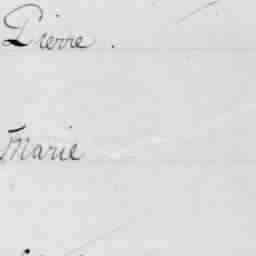 Pierre.
Marie